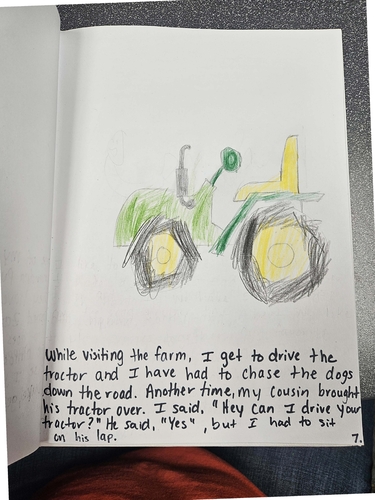 While visiting the farm, I get to drive the
tractor and I have had to chase the dogs
down the road. Another time, my cousin brought
his tractor over. I said, "Hey can I drive your
tractor?" He said, "Yes", but I had to sit
on his lap.
7.